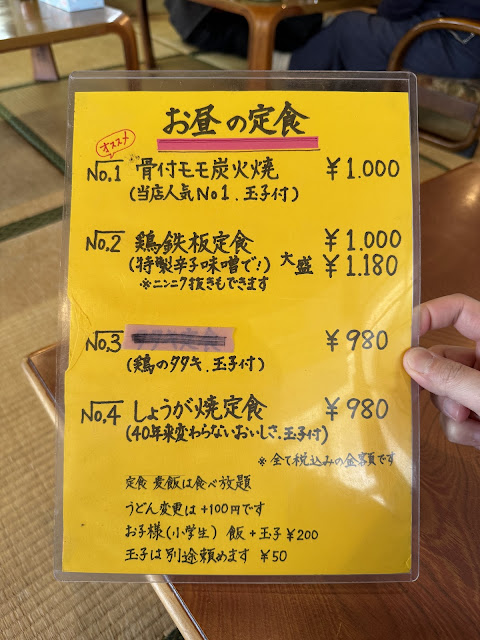 お昼の定食
オススメ
No.1 骨付モモ炭火焼 ¥1.000
(当店人気No1.玉子付)
No.2 鶏鉄板定食 ¥1.000
(特製辛子味噌で!) 大盛 ¥1.180
※ニンニク抜きもできます
No.3 ¥980
(鶏のタタキ.玉子付)
No.4 しょうが焼定食 ¥980
(40年来変わらないおいしさ.玉子付)
※全て税込みの金額です
定食 麦飯は食べ放題
うどん変更は+100円です
お子様(小学生) 飯+玉子¥200
玉子は別途頼めます ¥50